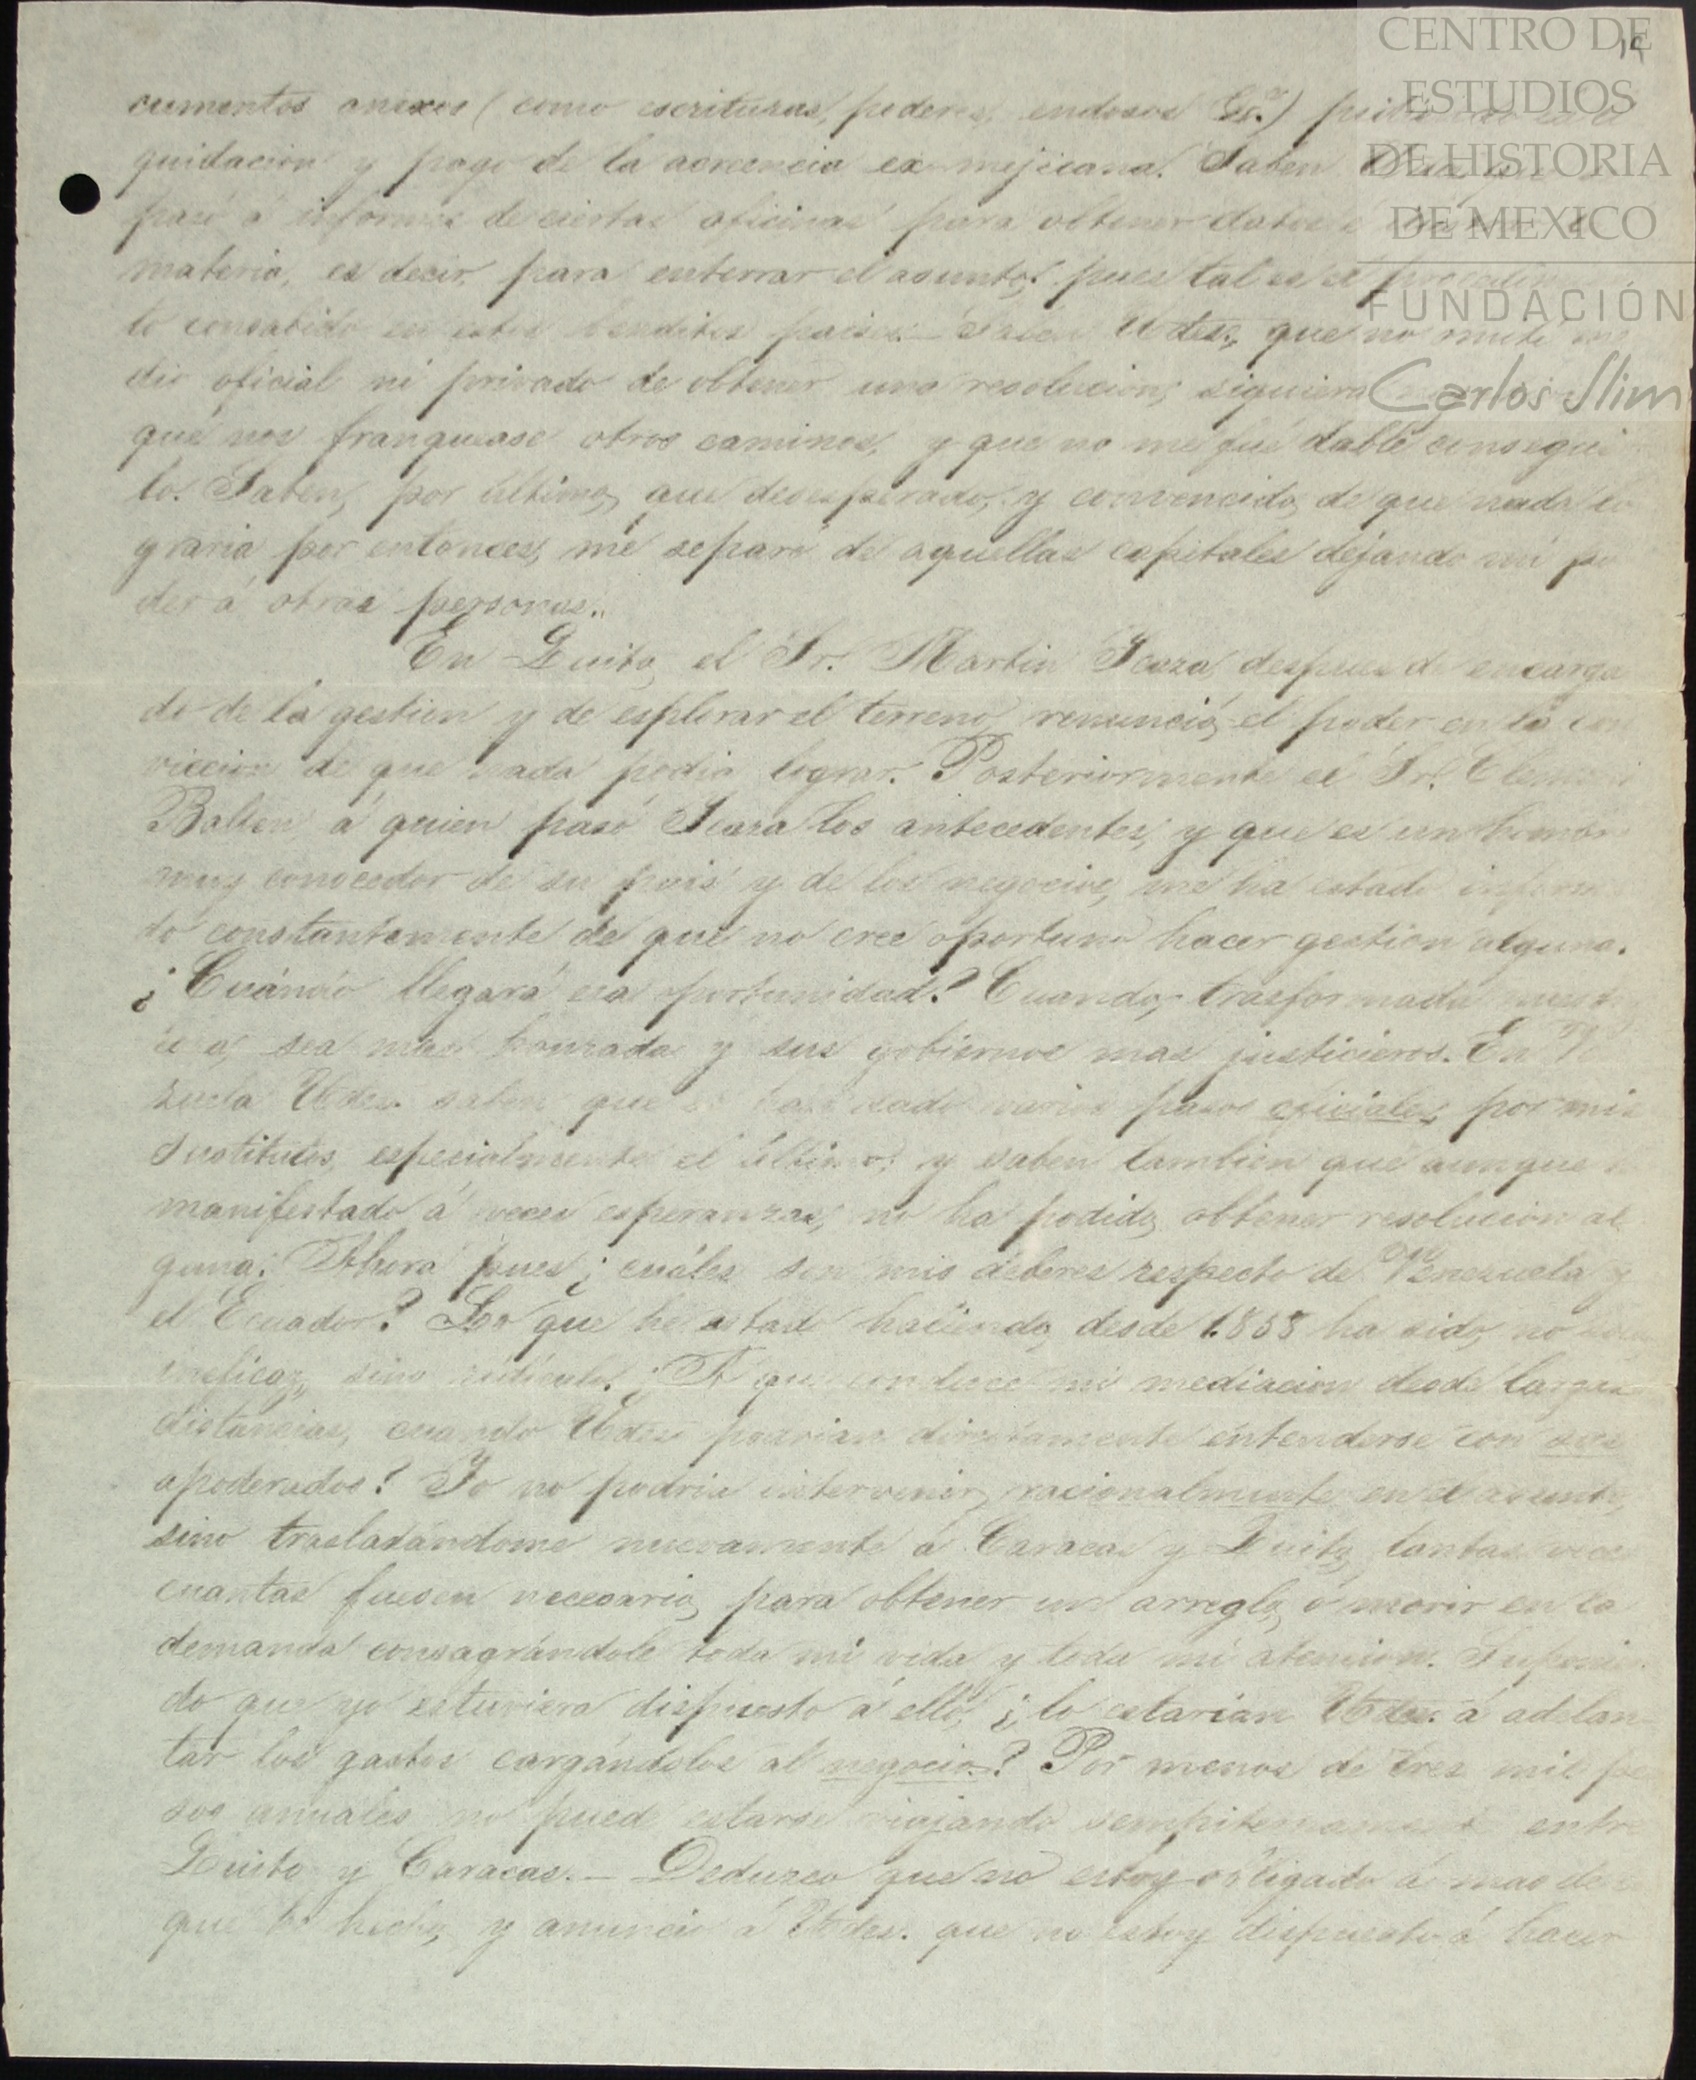 19
CENTRO DE
ESTUDIOS
DE HISTORIA
DE MEXICO
FUNDACIÓN
Carlos Slim
cumentos anexos (como escrituras, poderes, endosos &a.)
quidacion y pago de la acreencia ex-mejicana. Saben
pasó á informes de ciertas oficinas para obtener datos
materia, es decir, para enterrar el asunto, pues tal es el
to consabido en estos benditos paises.— Saben Udes., que no omití me
dio oficial ni privado de obtener una resolucion, siquiera
que nos franquease otros caminos, y que no me fué dable consegui
lo. Saben, por último, que desesperado, y convencido de que nada lo
graria por entonces, me separé de aquellas capitales dejando mi po
der á otras personas.
En Quito, el Sr. Martin Icaza, despues de encarga
do de la gestion y de esplorar el terreno, renunció el poder en la con
viccion de que nada podia lograr. Posteriormente el Sr. Clemente
Ballen á quien pasó Icaza los antecedentes, y que es un hombre
muy conocedor de su pais y de los negocios, me ha estado informan
do constantemente de que no cree oportuno hacer gestion alguna.
¿Cuándo llegará esa oportunidad? Cuando, trasformada
sea mas honrada y sus gobiernos mas justicieros. En Ve
zuela Udes. saben que se han dado varios pasos oficiales, por mis
sustitutos, especialmente el último; y saben tambien que aunque
manifestado á veces esperanzas, no ha podido obtener resolucion al
guna. Ahora pues ¿cuáles son mis deberes respecto de Venezuela y
el Ecuador? Lo que he estado haciendo desde 1858 ha sido, no
ineficaz, sino ridículo. ¿A que conduce mi mediacion desde largas
distancias, cuando Udes. podrian directamente entenderse con sus
apoderados? Yo no podria intervenir racionalmente en el asunto,
sino trasladándome nuevamente á Caracas y Quito, tantas veces
cuantas fuesen necesario, para obtener un arreglo, ó morir en la
demanda consagrándole toda mi vida y toda mi atencion. Suponien
do que yo estuviera dispuesto á ello, ¿lo estarian Udes. á adelan
tar los gastos cargándolos al negocio? Por menos de tres mil pe
sos anuales no puede estarse viajando sempiternamente entre
Quito y Caracas.— Deduzco que no estoy obligado á mas de
que he hecho, y anuncio á Udes. que no estoy dispuesto á hacer